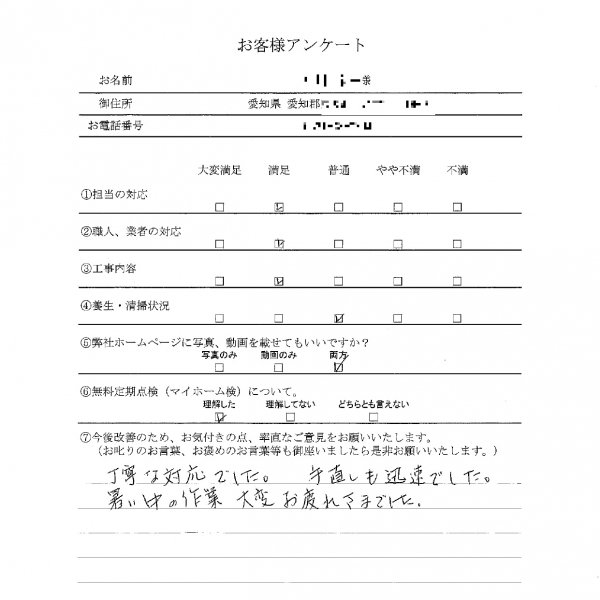 お客様アンケート
お名前 様
御住所 愛知県 愛知郡
お電話番号
大変満足 満足 普通 やや不満 不満
①担当の対応
□ ☑ □ □ □
②職人、業者の対応
□ ☑ □ □ □
③工事内容
□ ☑ □ □ □
④養生・清掃状況
□ □ ☑ □ □
⑤弊社ホームページに写真、動画を載せてもいいですか？
写真のみ 動画のみ 両方
□ □ ☑
⑥無料定期点検（マイホーム検）について。
理解した 理解してない どちらとも言えない
☑ □ □
⑦今後改善のため、お気付きの点、率直なご意見をお願いいたします。
（お叱りのお言葉、お褒めのお言葉等も御座いましたら是非お願いいたします。）
丁寧な対応でした。 手直しも迅速でした。
暑い中の作業 大変お疲れさまでした。